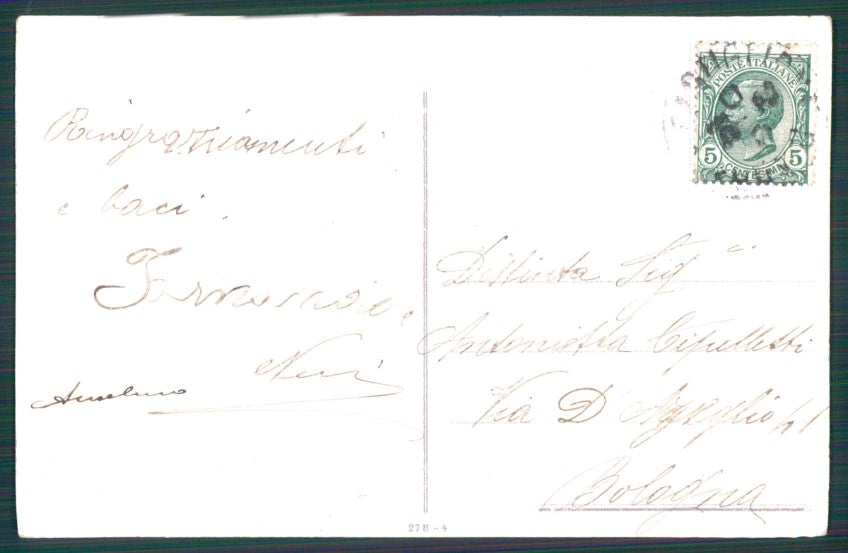 Ringraziamenti
e baci
Neri
Anselmo
POSTE ITALIANE
5 5
Distinta Sig
Antonietta Cipulletti
Via D'Azeglio 41
Bologna
278-4